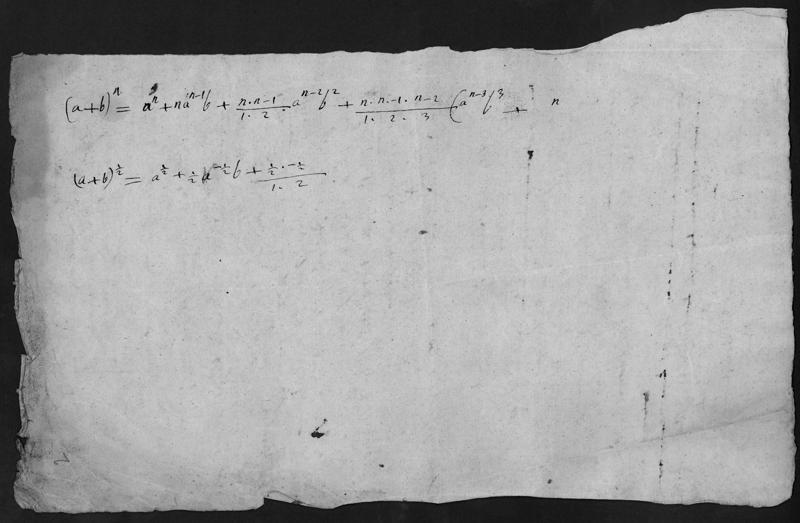 (a+b)^n = a^n + na^{n-1}b + \frac{n.n-1}{1. 2.} a^{n-2}b^2 + \frac{n.n-1.n-2}{1. 2. 3} (a^{n-3}b^3 + n
(a+b)^{\frac{1}{2}} = a^{\frac{1}{2}} + \frac{1}{2}a^{-\frac{1}{2}}b + \frac{\frac{1}{2}.-\frac{1}{2}}{1. 2}